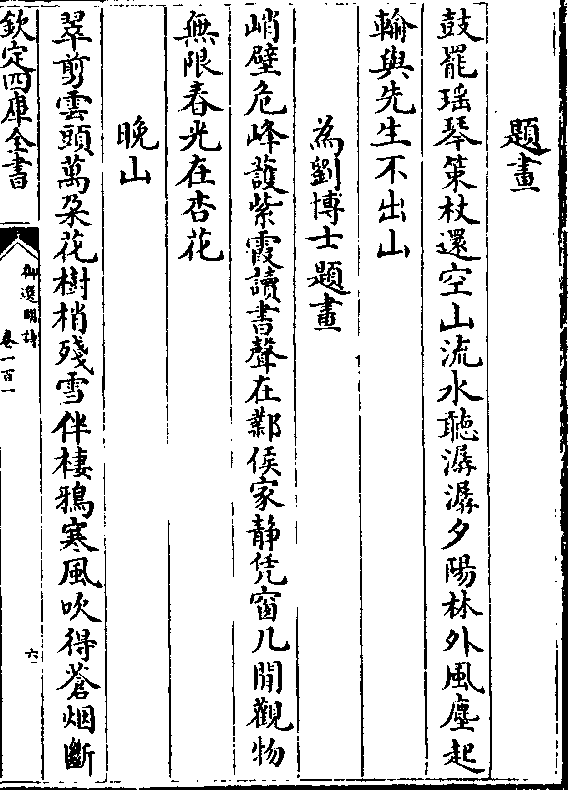 題畫
鼓罷瑶琴策杖還空山流水聽潺潺夕陽林外風塵起
輸與先生不出山
為劉博士題畫
峭壁危峰護紫霞讀書聲在鄴侯家静凭窗几閒觀物
無限春光在杏花
晚山
翠剪雲頭萬朶花樹梢殘雪伴棲鴉寒風吹得蒼烟斷
欽定四庫全書
御選明詩
卷一百一
六